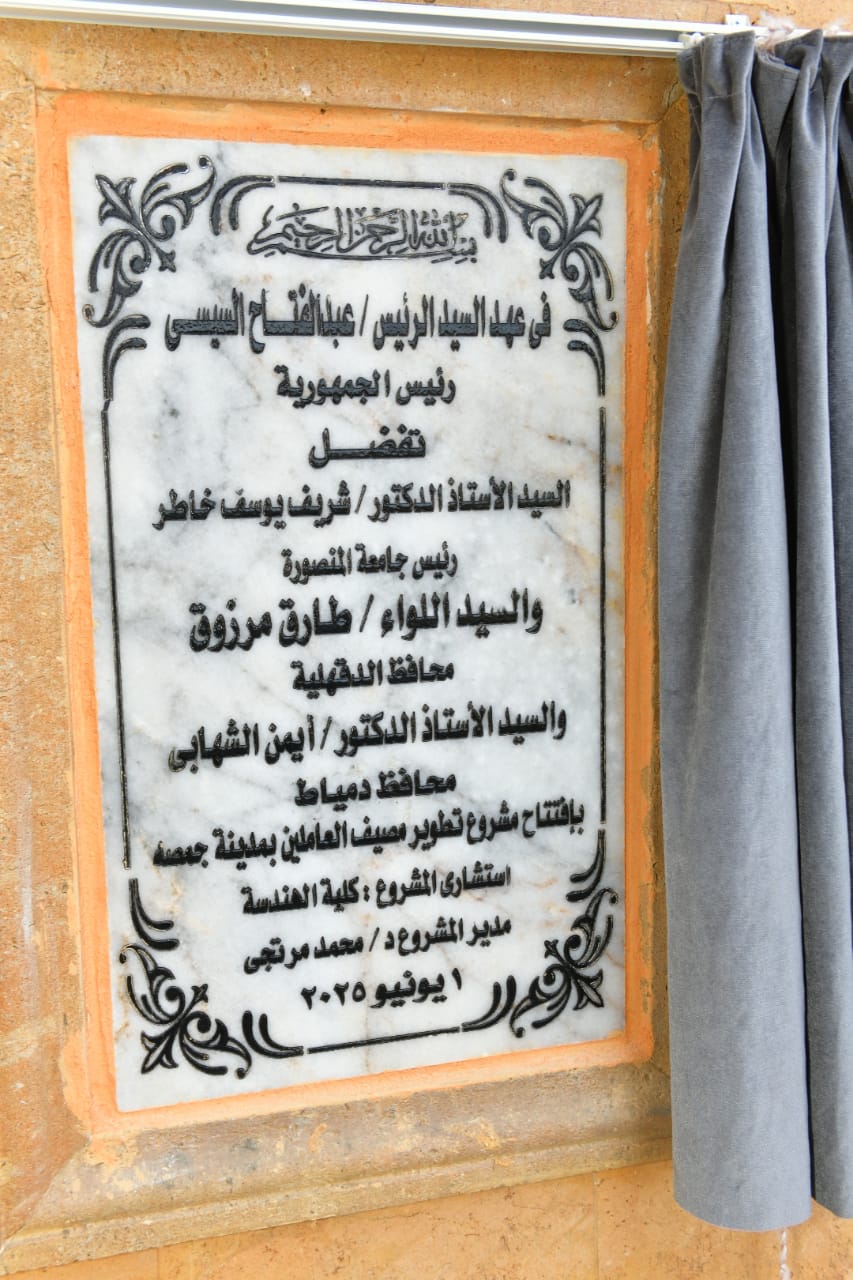 بسم الله الرحمن الرحيم
فى عهد السيد الرئيس / عبدالفتاح السيسى
رئيس الجمهورية
تفضل
السيد الأستاذ الدكتور / شريف يوسف خاطر
رئيس جامعة المنصورة
والسيد اللواء / طارق مرزوق
محافظ الدقهلية
والسيد الأستاذ الدكتور / أيمن الشهابى
محافظ دمياط
بإفتتاح مشروع تطوير مصيف العاملين بمدينة جمصه
استشارى المشروع : كلية الهندسة
مدير المشروع د / محمد مرتجى
١ يونيو ٢٠٢٥